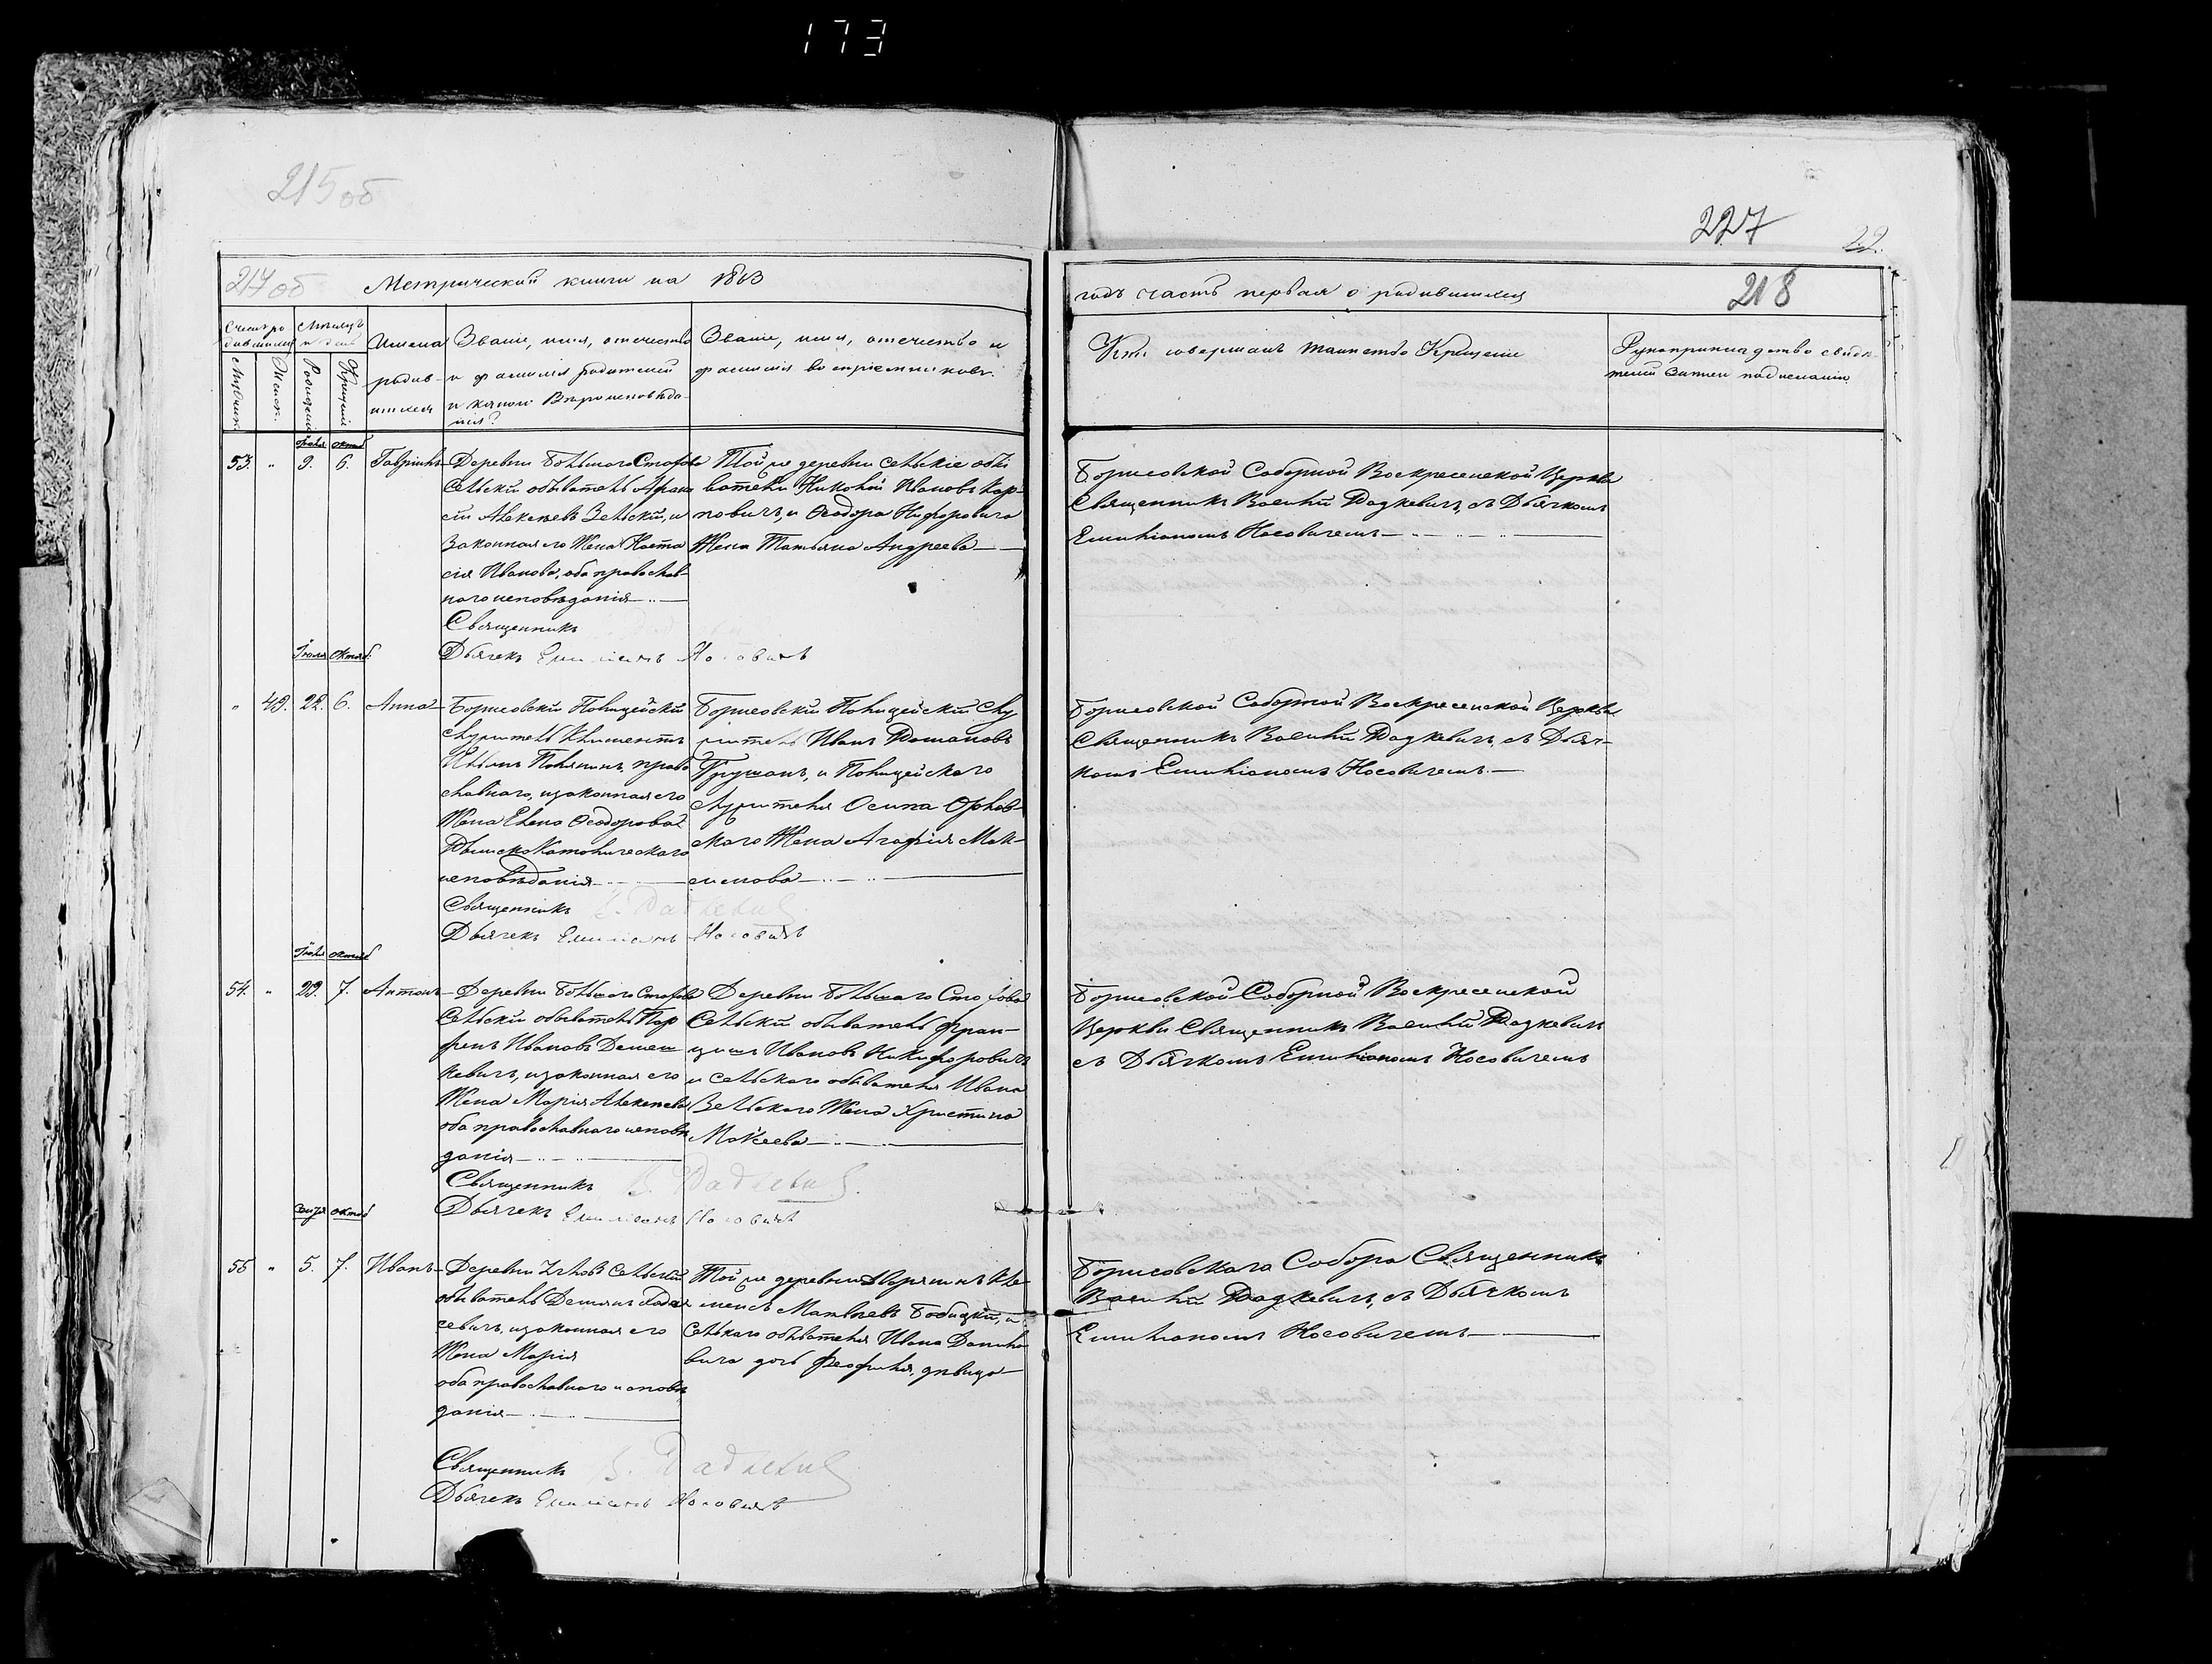 173
215 об
227
22.
217 об
Метрической книги на 1863
годъ часть первая о родившихся
218
Счетъ ро
дившихся
Мѣсяцъ
и день
Мужск.
Женск.
Рожденія
Крещенія
Имена
родив-
шихся
Званіе, имя, отечество
и фамилія родителей
и какого Вѣроисповѣда-
нія?
Званіе, имя, отечество и
фамилія воспріемниковъ.
Кто совершалъ таинство Крещенія
Рукоприкладство свидѣ-
телей записи по желанію
Іюля Октяб
53. " 9. 6. Гавріилъ
Деревни Большаго Стахова
Сельскій обыватель Афана
сій Алексѣевъ Зельскій, и
законная его Жена Наста
сія Иванова, оба православ-
наго исповѣданія
Священникъ
Дьячекъ Емиліанъ Носовичъ
Той же деревни сельскіе обы
ватели Николай Ивановъ Кар-
повичъ, и Ѳеодора Никифоровича
Жена Татьяна Андреева
Борисовской Соборной Воскресенской Церкви
Священникъ Василій Дадкевичъ, съ Дьячкомъ
Емиліаномъ Носовичемъ
Іюля Октяб.
" 49. 22. 6. Анна
Борисовскій Полицейскій
служитель Климентъ
православнаго, и законная его
Жена Елена Ѳеодорова
Римско Католическаго
исповѣданія
Священникъ В. Дадкевичъ
Дьячекъ Емиліанъ Носовичъ
Борисовскій Полицейскій слу
житель Иванъ
и Полицейскаго
служителя Осипа Орлов-
скаго Жена Агафія Мак-
симова
Борисовской Соборной Воскресенской Церкви
Священникъ Василій Дадкевичъ, съ Дьяч-
комъ Емиліаномъ Носовичемъ.
Іюля Октяб
54. " 29. 7. Антонъ
Деревни Большаго Стахова
Сельскій обыватель Пар
фенъ Ивановъ
кевичъ, и законная его
Жена Марія Алексѣева
оба православнаго исповѣ
данія
Священникъ В. Дадкевичъ
Дьячекъ Емиліанъ Носовичъ
Деревни Большаго Стахова
Сельскій обыватель Фран-
цишъ Ивановъ Никифоровичъ
и сельскаго обывателя Ивана
Зельскаго Жена Христина
Мокеева
Борисовской Соборной Воскресенской
Церкви Священникъ Василій Дадкевичъ
съ Дьячкомъ Емиліаномъ Носовичемъ
Октяб
55 " 5. 7. Иванъ
Деревни Сельскій
обыватель Демьянъ
севичъ, и законная его
Жена Марія
оба православнаго исповѣ
данія
Священникъ В. Дадкевичъ
Дьячекъ Емиліанъ Носовичъ
Той же деревни Дворянинъ Кле
менсъ Матвѣевъ и
Сельскаго обывателя Ивана Данило
вича дочь Феофилія, дѣвица
Борисовскаго Собора Священникъ
Василій Дадкевичъ, съ Дьячкомъ
Емиліаномъ Носовичемъ